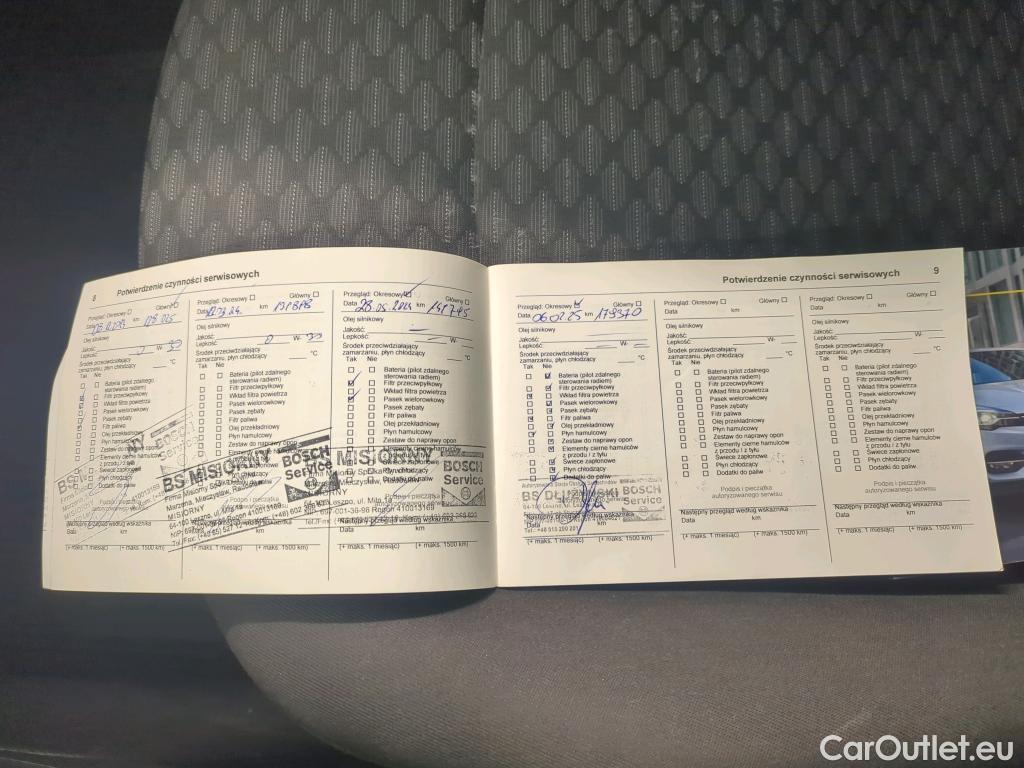 8 Potwierdzenie czynności serwisowych
Główny
Przegląd: Okresowy
Data km
Olej silnikowy
Jakość:
Lepkość: W- 30
Środek przeciwdziałający
zamarzaniu, płyn chłodzący °C
Tak Nie
Bateria (pilot zdalnego
sterowania radiem)
Filtr przeciwpyłkowy
Wkład filtra powietrza
Pasek wielorowkowy
Pasek zębaty
Filtr paliwa
Olej przekładniowy
Płyn hamulcowy
Zestaw do naprawy opon
Elementy cierne hamulców
z przodu / z tyłu
Świece zapłonowe
Płyn chłodzący
Dodatki do paliw
Podpis i pieczątka
autoryzowanego serwisu
Następny przegląd według wskaźnika
Data km
(+ maks. 1 miesiąc) (+ maks. 1500 km)
Przegląd: Okresowy Główny
Data km
Olej silnikowy
Jakość:
Lepkość: W- 30
Środek przeciwdziałający
zamarzaniu, płyn chłodzący °C
Tak Nie
Bateria (pilot zdalnego
sterowania radiem)
Filtr przeciwpyłkowy
Wkład filtra powietrza
Pasek wielorowkowy
Pasek zębaty
Filtr paliwa
Olej przekładniowy
Płyn hamulcowy
Zestaw do naprawy opon
BS MISIORNY
BOSCH
Service
(+ maks. 1 miesiąc) (+ maks. 1500 km)
Przegląd: Okresowy Główny
Data 28.05.2024 km 147745
Olej silnikowy
Jakość:
Lepkość: W-
Środek przeciwdziałający
zamarzaniu, płyn chłodzący °C
Tak Nie
Bateria (pilot zdalnego
sterowania radiem)
Filtr przeciwpyłkowy
Wkład filtra powietrza
Pasek wielorowkowy
Pasek zębaty
Filtr paliwa
Olej przekładniowy
Płyn hamulcowy
Zestaw do naprawy opon
MISIORNY
BOSCH
Service
Następny przegląd według wskaźnika
Data km
(+ maks. 1 miesiąc) (+ maks. 1500 km)
Potwierdzenie czynności serwisowych 9
Przegląd: Okresowy Główny
Data 06.02.25 km 179370
Olej silnikowy
Jakość:
Lepkość: W-
Środek przeciwdziałający
zamarzaniu, płyn chłodzący °C
Tak Nie
Bateria (pilot zdalnego
sterowania radiem)
Filtr przeciwpyłkowy
Wkład filtra powietrza
Pasek wielorowkowy
Pasek zębaty
Filtr paliwa
Olej przekładniowy
Płyn hamulcowy
Zestaw do naprawy opon
Elementy cierne hamulców
z przodu / z tyłu
Świece zapłonowe
Płyn chłodzący
Dodatki do paliw
BOSCH
Service
Następny przegląd według wskaźnika
Data km
(+ maks. 1 miesiąc) (+ maks. 1500 km)
Przegląd: Okresowy Główny
Data km
Olej silnikowy
Jakość:
Lepkość: W-
Środek przeciwdziałający
zamarzaniu, płyn chłodzący °C
Tak Nie
Bateria (pilot zdalnego
sterowania radiem)
Filtr przeciwpyłkowy
Wkład filtra powietrza
Pasek wielorowkowy
Pasek zębaty
Filtr paliwa
Olej przekładniowy
Płyn hamulcowy
Zestaw do naprawy opon
Elementy cierne hamulców
z przodu / z tyłu
Świece zapłonowe
Płyn chłodzący
Dodatki do paliw
Podpis i pieczątka
autoryzowanego serwisu
Następny przegląd według wskaźnika
Data km
(+ maks. 1 miesiąc) (+ maks. 1500 km)
Przegląd: Okresowy Główny
Data km
Olej silnikowy
Jakość:
Lepkość: W-
Środek przeciwdziałający
zamarzaniu, płyn chłodzący °C
Tak Nie
Bateria (pilot zdalnego
sterowania radiem)
Filtr przeciwpyłkowy
Wkład filtra powietrza
Pasek wielorowkowy
Pasek zębaty
Filtr paliwa
Olej przekładniowy
Płyn hamulcowy
Zestaw do naprawy opon
Elementy cierne hamulców
z przodu / z tyłu
Świece zapłonowe
Płyn chłodzący
Dodatki do paliw
Podpis i pieczątka
autoryzowanego serwisu
Następny przegląd według wskaźnika
Data km
(+ maks. 1 miesiąc) (+ maks. 1500 km)
CarOutlet.eu